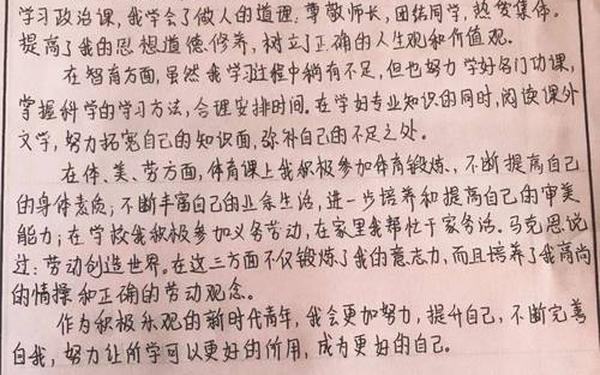 学习政治课,我学会了做人的道理:尊敬师长,团结同学,热爱集体。
提高了我的思想道德修养,树立了正确的人生观和价值观。
在智育方面,虽然我学习过程中稍有不足,但也努力学好各门功课,
掌握科学的学习方法,合理安排时间。在学好专业知识的同时,阅读课外
文学,努力拓宽自己的知识面,弥补自己的不足之处。
在体、美、劳方面,体育课上我积极参加体育锻炼、不断提高自己
的身体素质;不断丰富自己的业余生活,进一步培养和提高自己的审美
能力;在学校我积极参加义务劳动,在家里我帮忙干家务活。马克思说
过:劳动创造世界。在这三方面不仅锻炼了我的意志力,而且培养了我高尚
的情操和正确的劳动观念。
作为积极乐观的新时代青年,我会更加努力,提升自己,不断完善
自我,努力让所学可以更好的所用,成为更好的自己。